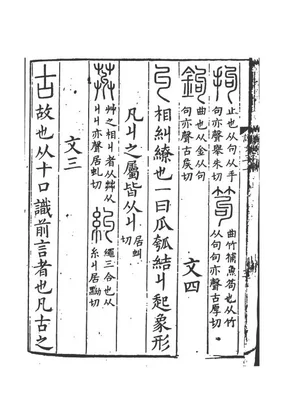 拘 止也从句从手句亦聲舉朱切 笱 曲竹捕魚笱也从竹从句句亦聲古厚切
鉤 曲也从金从句句亦聲古矦切 文四
丩 相糾繚也一曰瓜瓠結丩起象形
凡丩之屬皆从丩 居虯切
𦱠 艸之相丩者从茻从丩丩亦聲居虬切 糾 繩三合也从糸丩居黝切
文三
古 故也从十口識前言者也凡古之